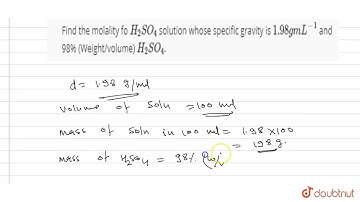 Find the molality fo H₂SO₄ solution whose specific gravity is 1.98gmL⁻¹ and
98% (Weight/volume) H₂SO₄.
d = 1.98 g/ml
volume of soln = 100 ml
mass of soln in 100 ml = 1.98 × 100
= 198 g.
mass of H₂SO₄ = 98%
doubtnut